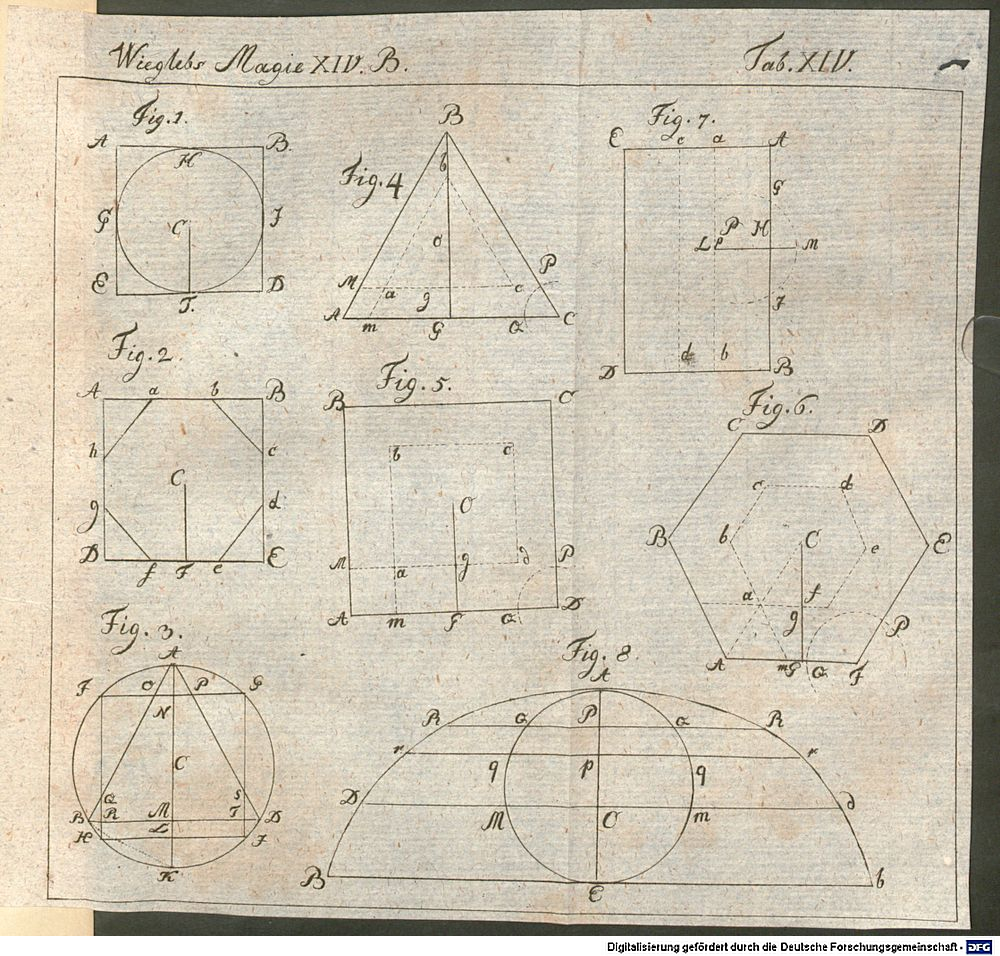 Wieglebs Magie XIV. B.
Tab. XIV.
Fig. 1.
A B
H
G C I
E D
T.
Fig. 4
B
b
o
M a g c P
A m G Q C
Fig. 7.
C c a A
G
L P H M
e
I
D d b B
Fig. 2.
A a b B
h c
C
g d
D f F e E
Fig. 5.
B C
b c
O
M a g d P
A m G Q D
Fig. 6.
C D
c d
B b C e E
a f
g P
A m G Q F
Fig. 3.
A
F O P G
N
C
Q S
B R M T D
H L I
K
Fig. 8.
A
R Q P Q R
r q p q r
D M O m d
B E b
Digitalisierung gefördert durch die Deutsche Forschungsgemeinschaft - DFG